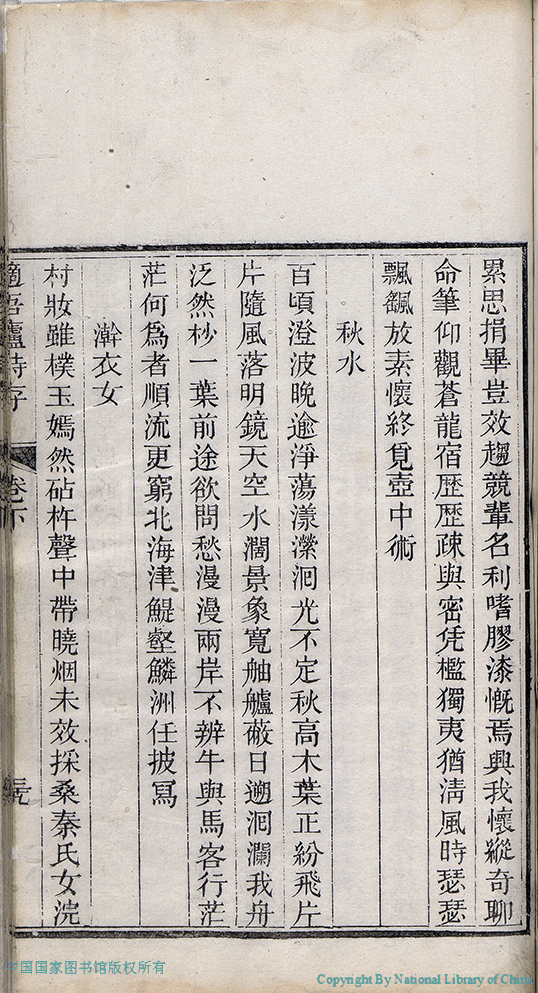 累思捐畢豈效趨競輩名利嗜膠漆慨焉興我懷縱奇聊
命筆仰觀蒼龍宿歷歷疎與密凭檻獨夷猶淸風時瑟瑟
飄飖放素懷終覓壺中術
秋水
百頃澄波晚逾淨蕩漾瀠洄光不定秋高木葉正紛飛片
片隨風落明鏡天空水濶景象寬舳艫蔽日遡洄瀾我舟
泛然杪一葉前途欲問愁漫漫兩岸不辨牛與馬客行茫
茫何爲者順流更窮北海津鯷壑鱗洲任披冩
澣衣女
村妝雖樸玉嫣然砧杵聲中帶曉烟未效採桑秦氏女浣
適吾廬詩存
卷下
中国国家图书馆版权所有
Copyright By National Library of China